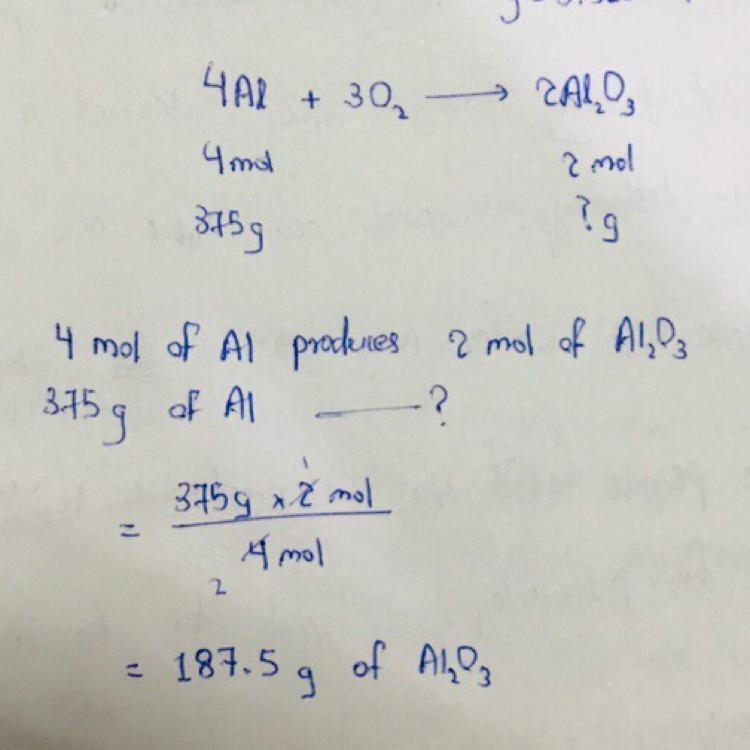 4Al + 3O₂ ⟶ 2Al₂O₃
4 mol 2 mol
375g ? g
4 mol of Al produces 2 mol of Al₂O₃
375 g of Al —— ?
= 375g × 2 mol 1
4 mol 2
= 187.5 g of Al₂O₃